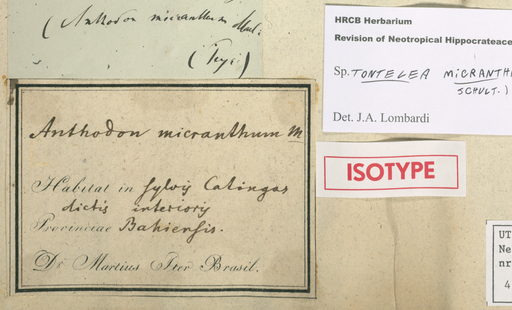 (Anthodon micranthum Mart.
(Typ.)
HRCB Herbarium
Revision of Neotropical Hippocrateace
Sp. TONTELEA MICRANTH
SCHULT.)
Det. J.A. Lombardi
Anthodon micranthum M
Habitat in sylvis Catingas
dictis interioris
Provinciae Bahiensis.
Dr Martius Iter Brasil.
ISOTYPE
UT
Ne
nr
4